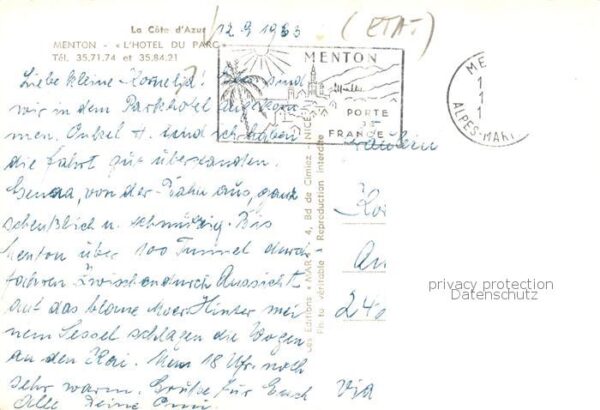 La Côte d'Azur
MENTON - "L'HOTEL DU PARC"
Tél. 35.71.74 et 35.84.21
12.9.1963
(ETAT)
MENTON
PORTE
DE
FRANCE
ME
ALPES-MAR
Liebe kleine Kornelia! Hier sind
wir in dem Parkhotel angekom
men. Onkel H. und ich haben
die Fahrt gut überstanden.
Genua, von der Bahn aus, ganz
scheußlich u. schmutzig. Bis
Menton über 100 Tunnel durch
fahren. Zwischendurch Aussicht
auf das blaue Meer. Hinter mei
nem Sessel schlagen die Wogen
an den Kai. 18 Uhr noch
sehr warm. Grüße für Euch
Alle Deine Omi.
Les Editions "MAR" - 4, Bd de Cimiez - NICE
Photo véritable - Reproduction interdite
Fräulein
Ko
An
24
Via
privacy protection
Datenschutz